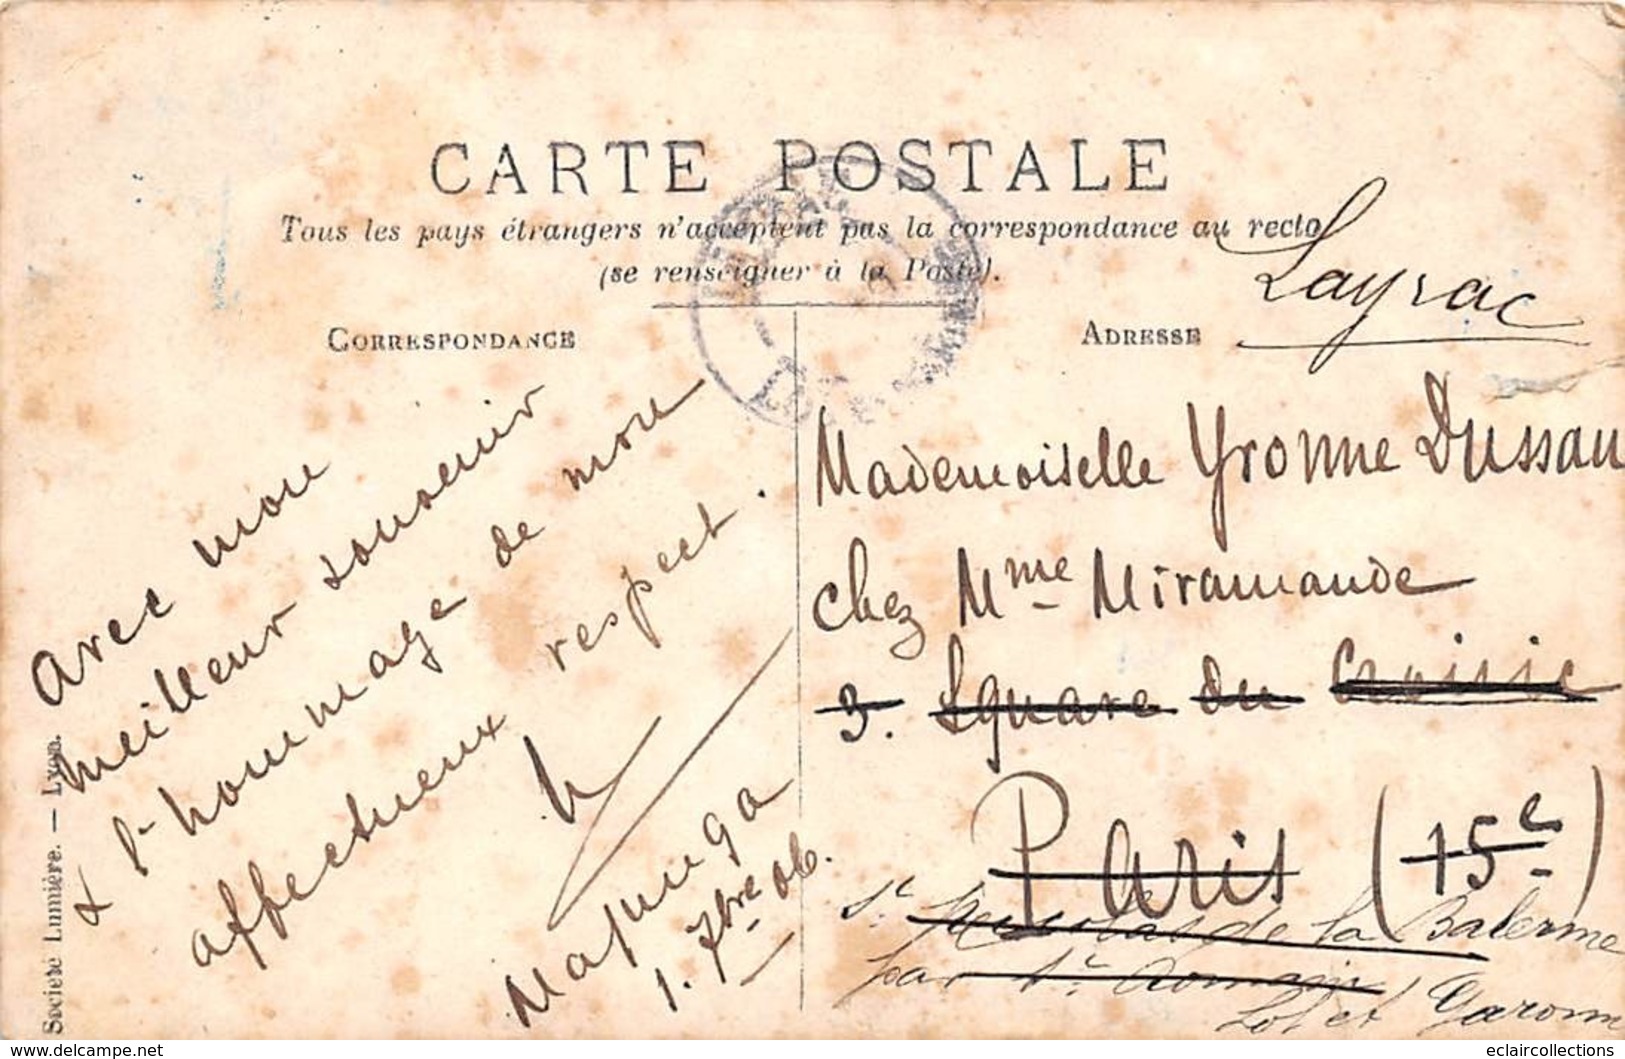 CARTE POSTALE
Tous les pays étrangers n'acceptent pas la correspondance au recto
(se renseigner à la Poste).
CORRESPONDANCE
ADRESSE
Layrac
Avec mon
meilleur souvenir
& l'hommage de mon
affectueux respect.
1. 7bre 06.
Mademoiselle Yvonne Dussau
chez Mme Miramande
3. Square du Croisic
Paris (15e)
St Nicolas de la Balerme
par St Romain
Lot et Garonne
Société Lumière. — Lyon.
eclaircollections